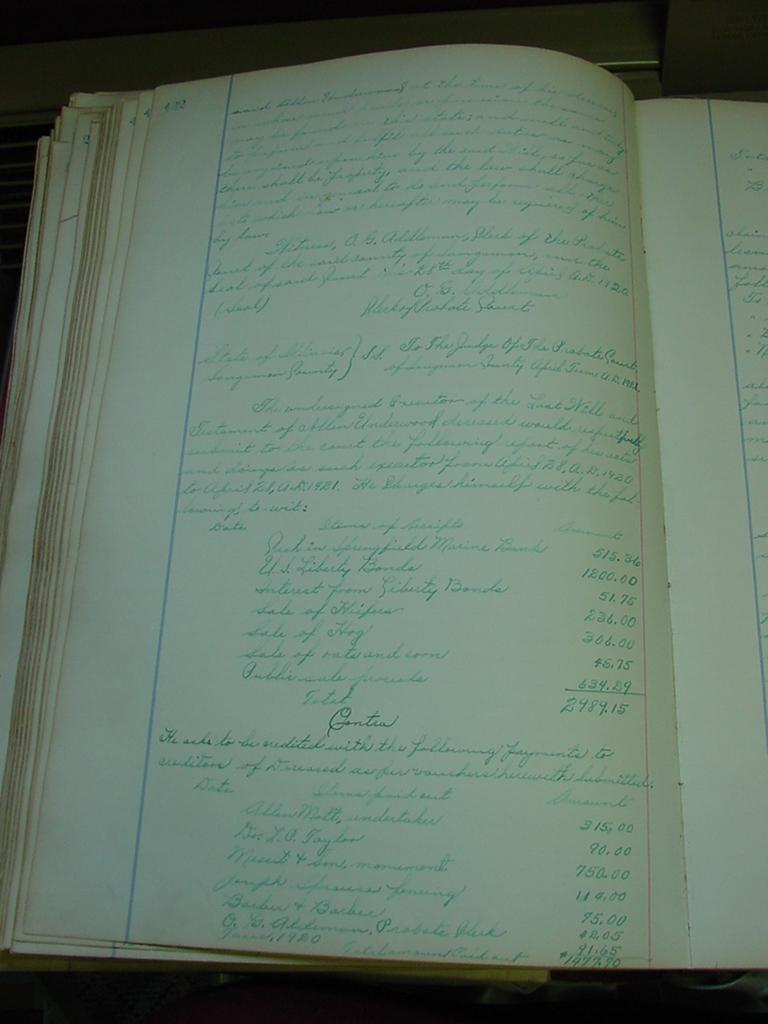 432
said Allen Underwood at the time of his decease
may be found this state; and well and truly
to perform and fulfil all such duties as may
be enjoined upon him by the said Will, so far as
there shall be property, and the law shall charge
him and in general to do and perform all other
acts which now or hereafter may be required of him
by law.
Witness, O. G. Addleman, Clerk of the Probate
Court of the said county of Sangamon, and the
seal of said Court this 28th day of April A.D. 1920
(Seal) O. G. Addleman
Clerk of Probate Court
State of Illinois } S.S. To The Judge Of The Probate Court
Sangamon County of Sangamon County April Term A.D. 1921
The undersigned Executor of the Last Will and
Testament of Allen Underwood deceased would respectfully
submit to the court the following report of his acts
and doings as such executor from April 28, A.D. 1920
to April 28, A.D. 1921. He Charges himself with the fol-
lowing to-wit:
Date Items of Receipts Amount
Cash in Springfield Marine Bank 515.36
U.S. Liberty Bonds 1200.00
Interest from Liberty Bonds 51.75
Sale of Heifers 236.00
Sale of Hog 306.00
Sale of oats and corn 45.75
Public sale proceeds 634.29
Total 2989.15
Contra
He asks to be credited with the following payments to
creditors of Deceased as per vouchers herewith submitted.
Date Items paid out Amount
Allen Mott, undertaker 315.00
Dr. L. O. Taylor 90.00
& Son, monument 750.00
Joseph fencing
Barber & Barber 75.00
O. G. Addleman, Probate Clerk 42.05
Taxes, 1920 91.65
Total amount Paid out $1477.70